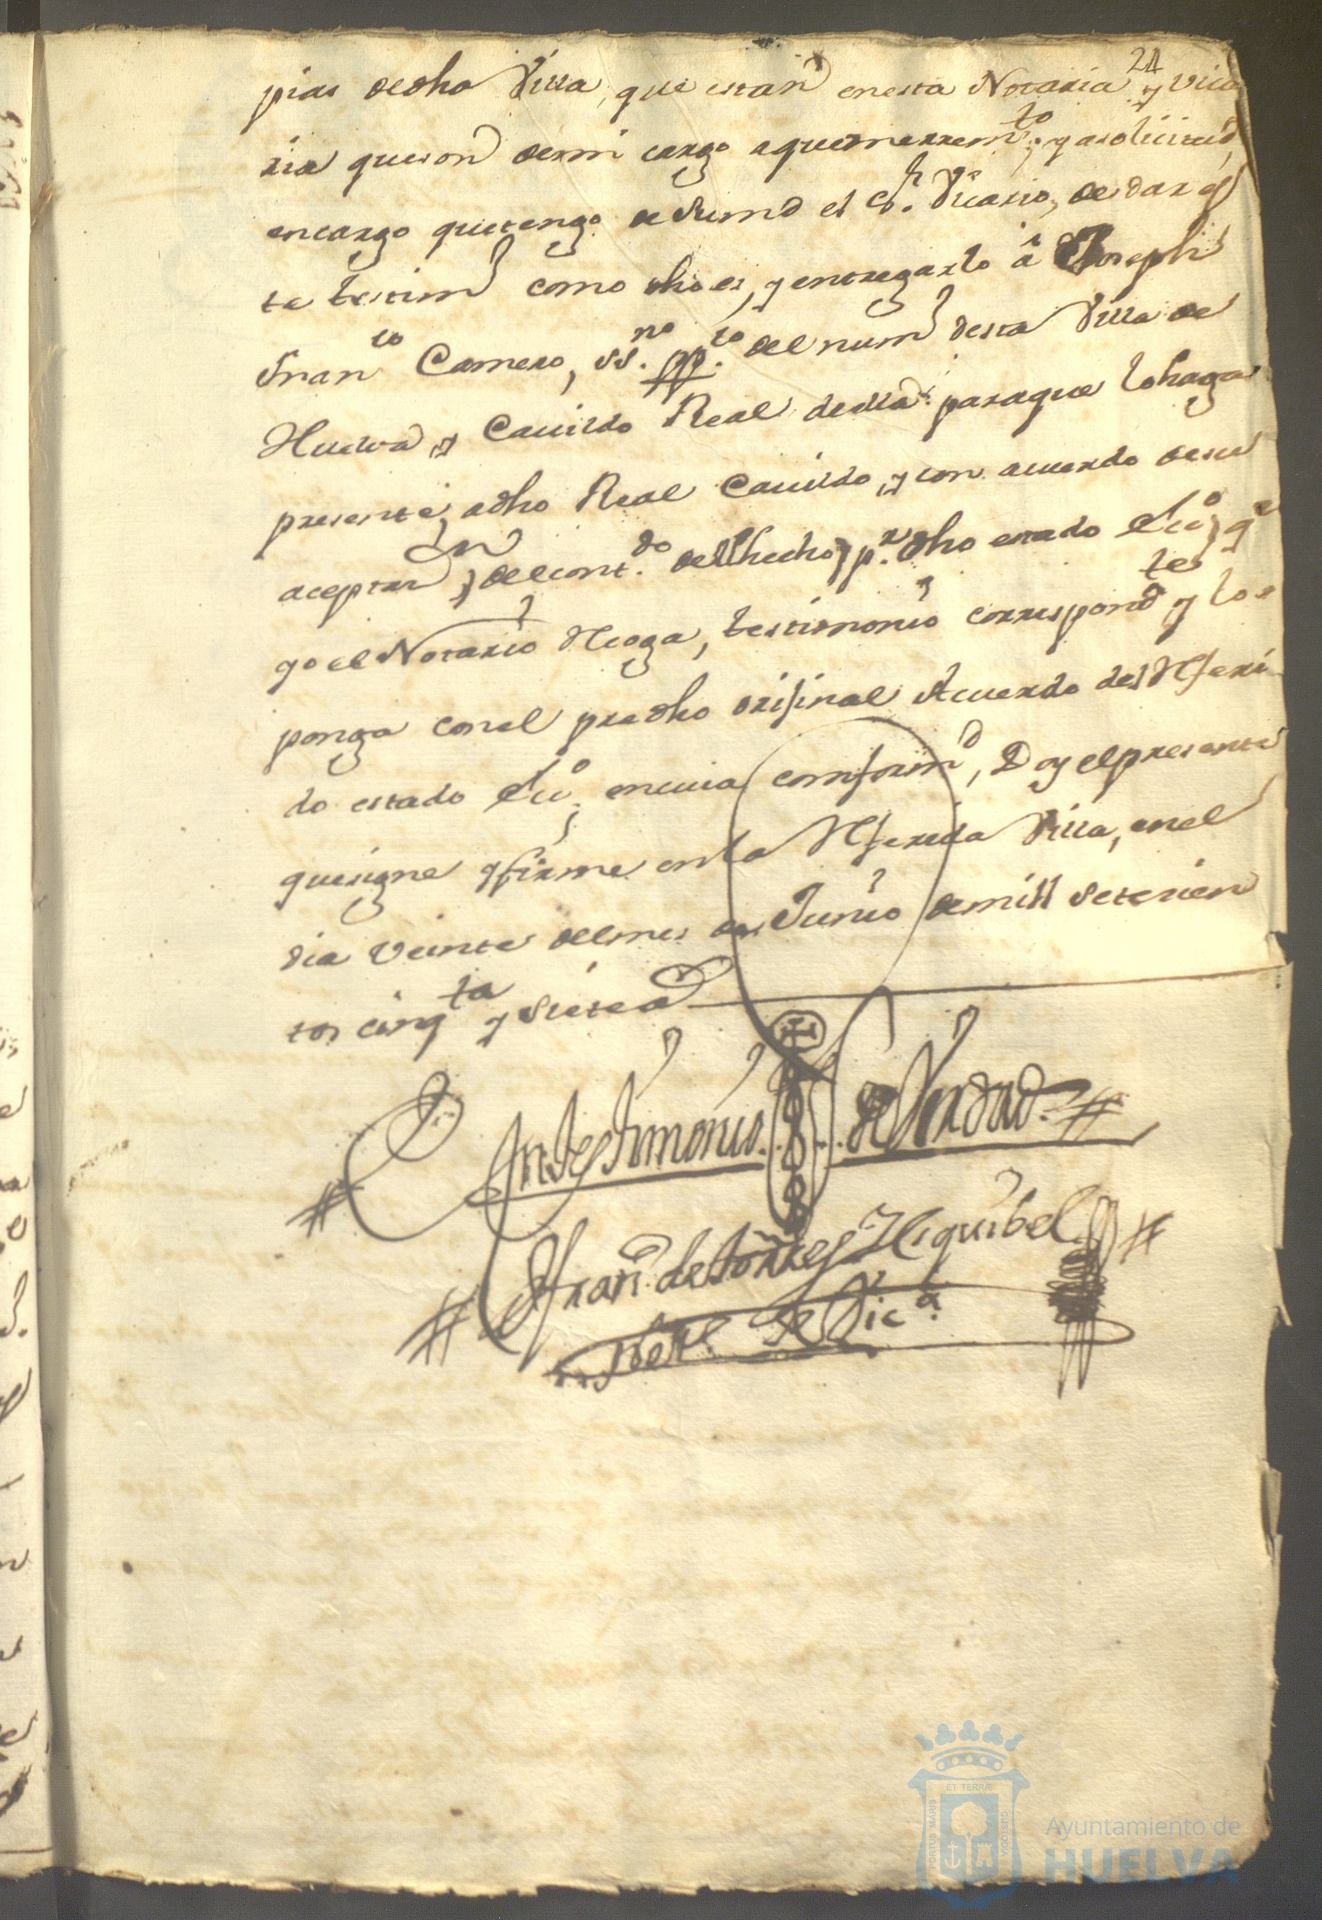 21
pias dedha Villa, que estan en esta Notaria y Vica
ria que son de mi cargo a que me rrem.to y a solicitud
encargo que tengo de sumd el S.r Vicario, de dar es
te testim como dho es, y entregarlo â Joseph
Fran.co Camero, SS.no pp.co del num desta Villa de
Huelva y Cavildo Real della: para que lo haga
presente, a dho Real Cavildo, y con acuerdo desu
aceptan de el cont.do del hecho p.r dho estado Ecc.o q.e
yo el Notario Noga, testimonio correspond.te y lo
ponga con el predho orijinal Acuerdo del Referi
do estado Ecc.o en cuia comformd, Doy el presente
que signe y firme en la Referida Villa, en el
dia Veinte del mes de Junio de mill setecien
tos cinq.ta y siete a
En testimonio de Verdad
Fran.co de torres Hesquibel
de Vic.a
PORTUS MARIS
ET TERRÆ
CUSTODIA
Ayuntamiento de
HUELVA